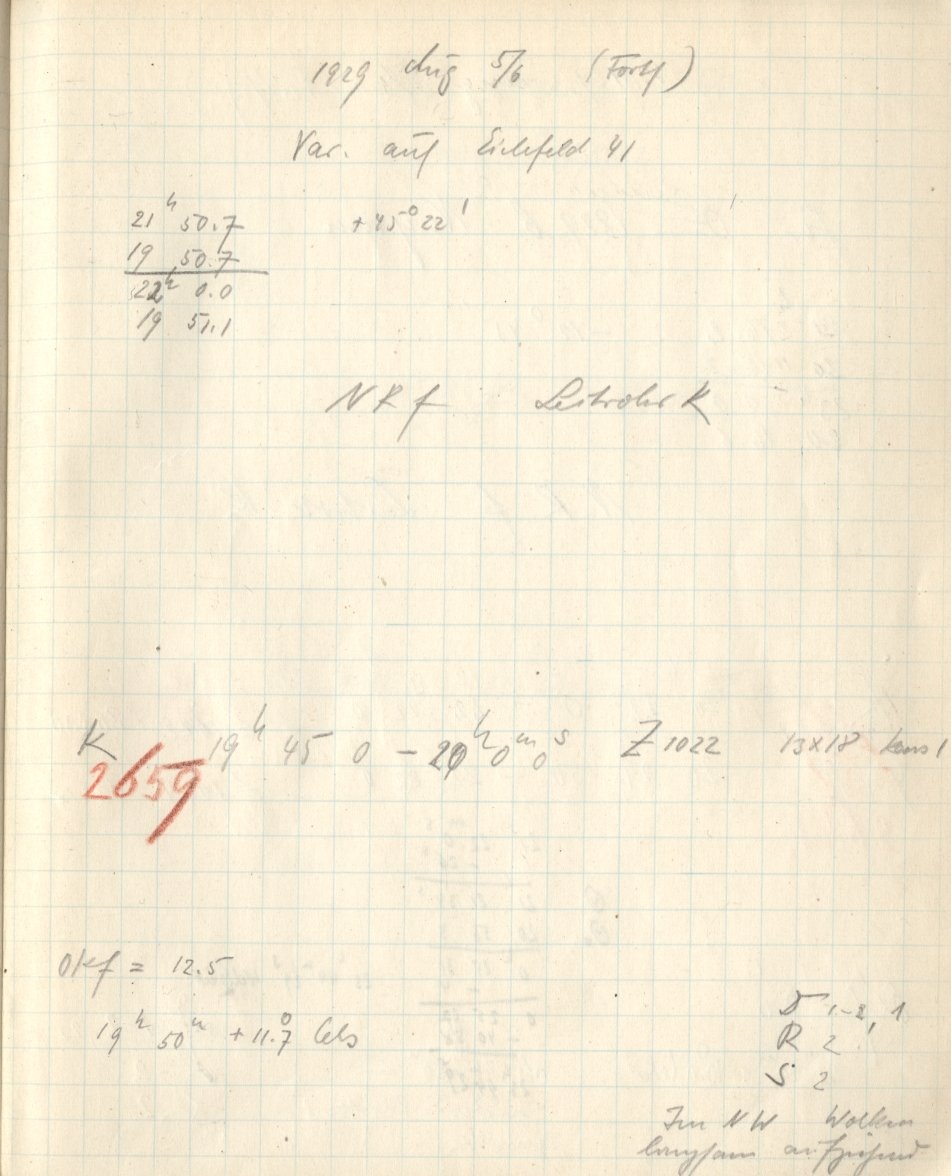 1929 Aug 5/6 (Forts)
Var. auf Eichfeld 41
21ʰ 50.7 +45° 22'
19 50.7
22ʰ 0.0
19 51.1
NRf Leitrohr K
K 19ʰ 45 0 – 20ʰ 0ᵐ 0ˢ Z 1022 13x18
2659
Okf = 12.5
19ʰ 50ᵐ + 11.7° Cels
D 1-2, 1
R 2
S 2
Im NW Wolken
langsam aufziehend